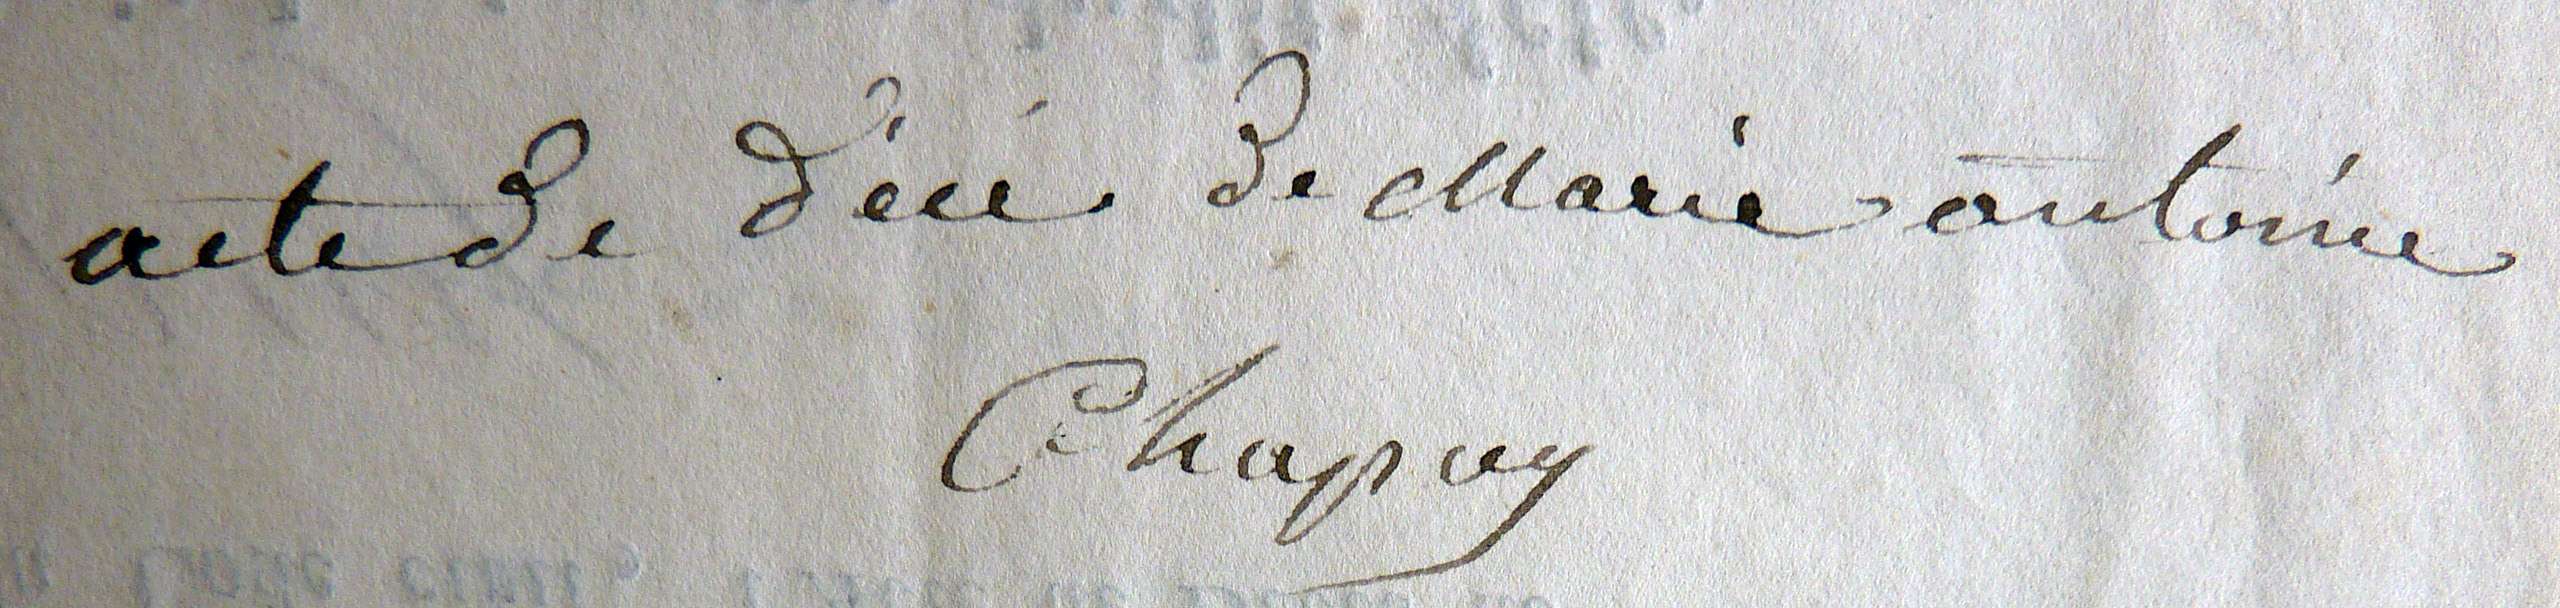 acte de décé de Marie antoine
Chapuy